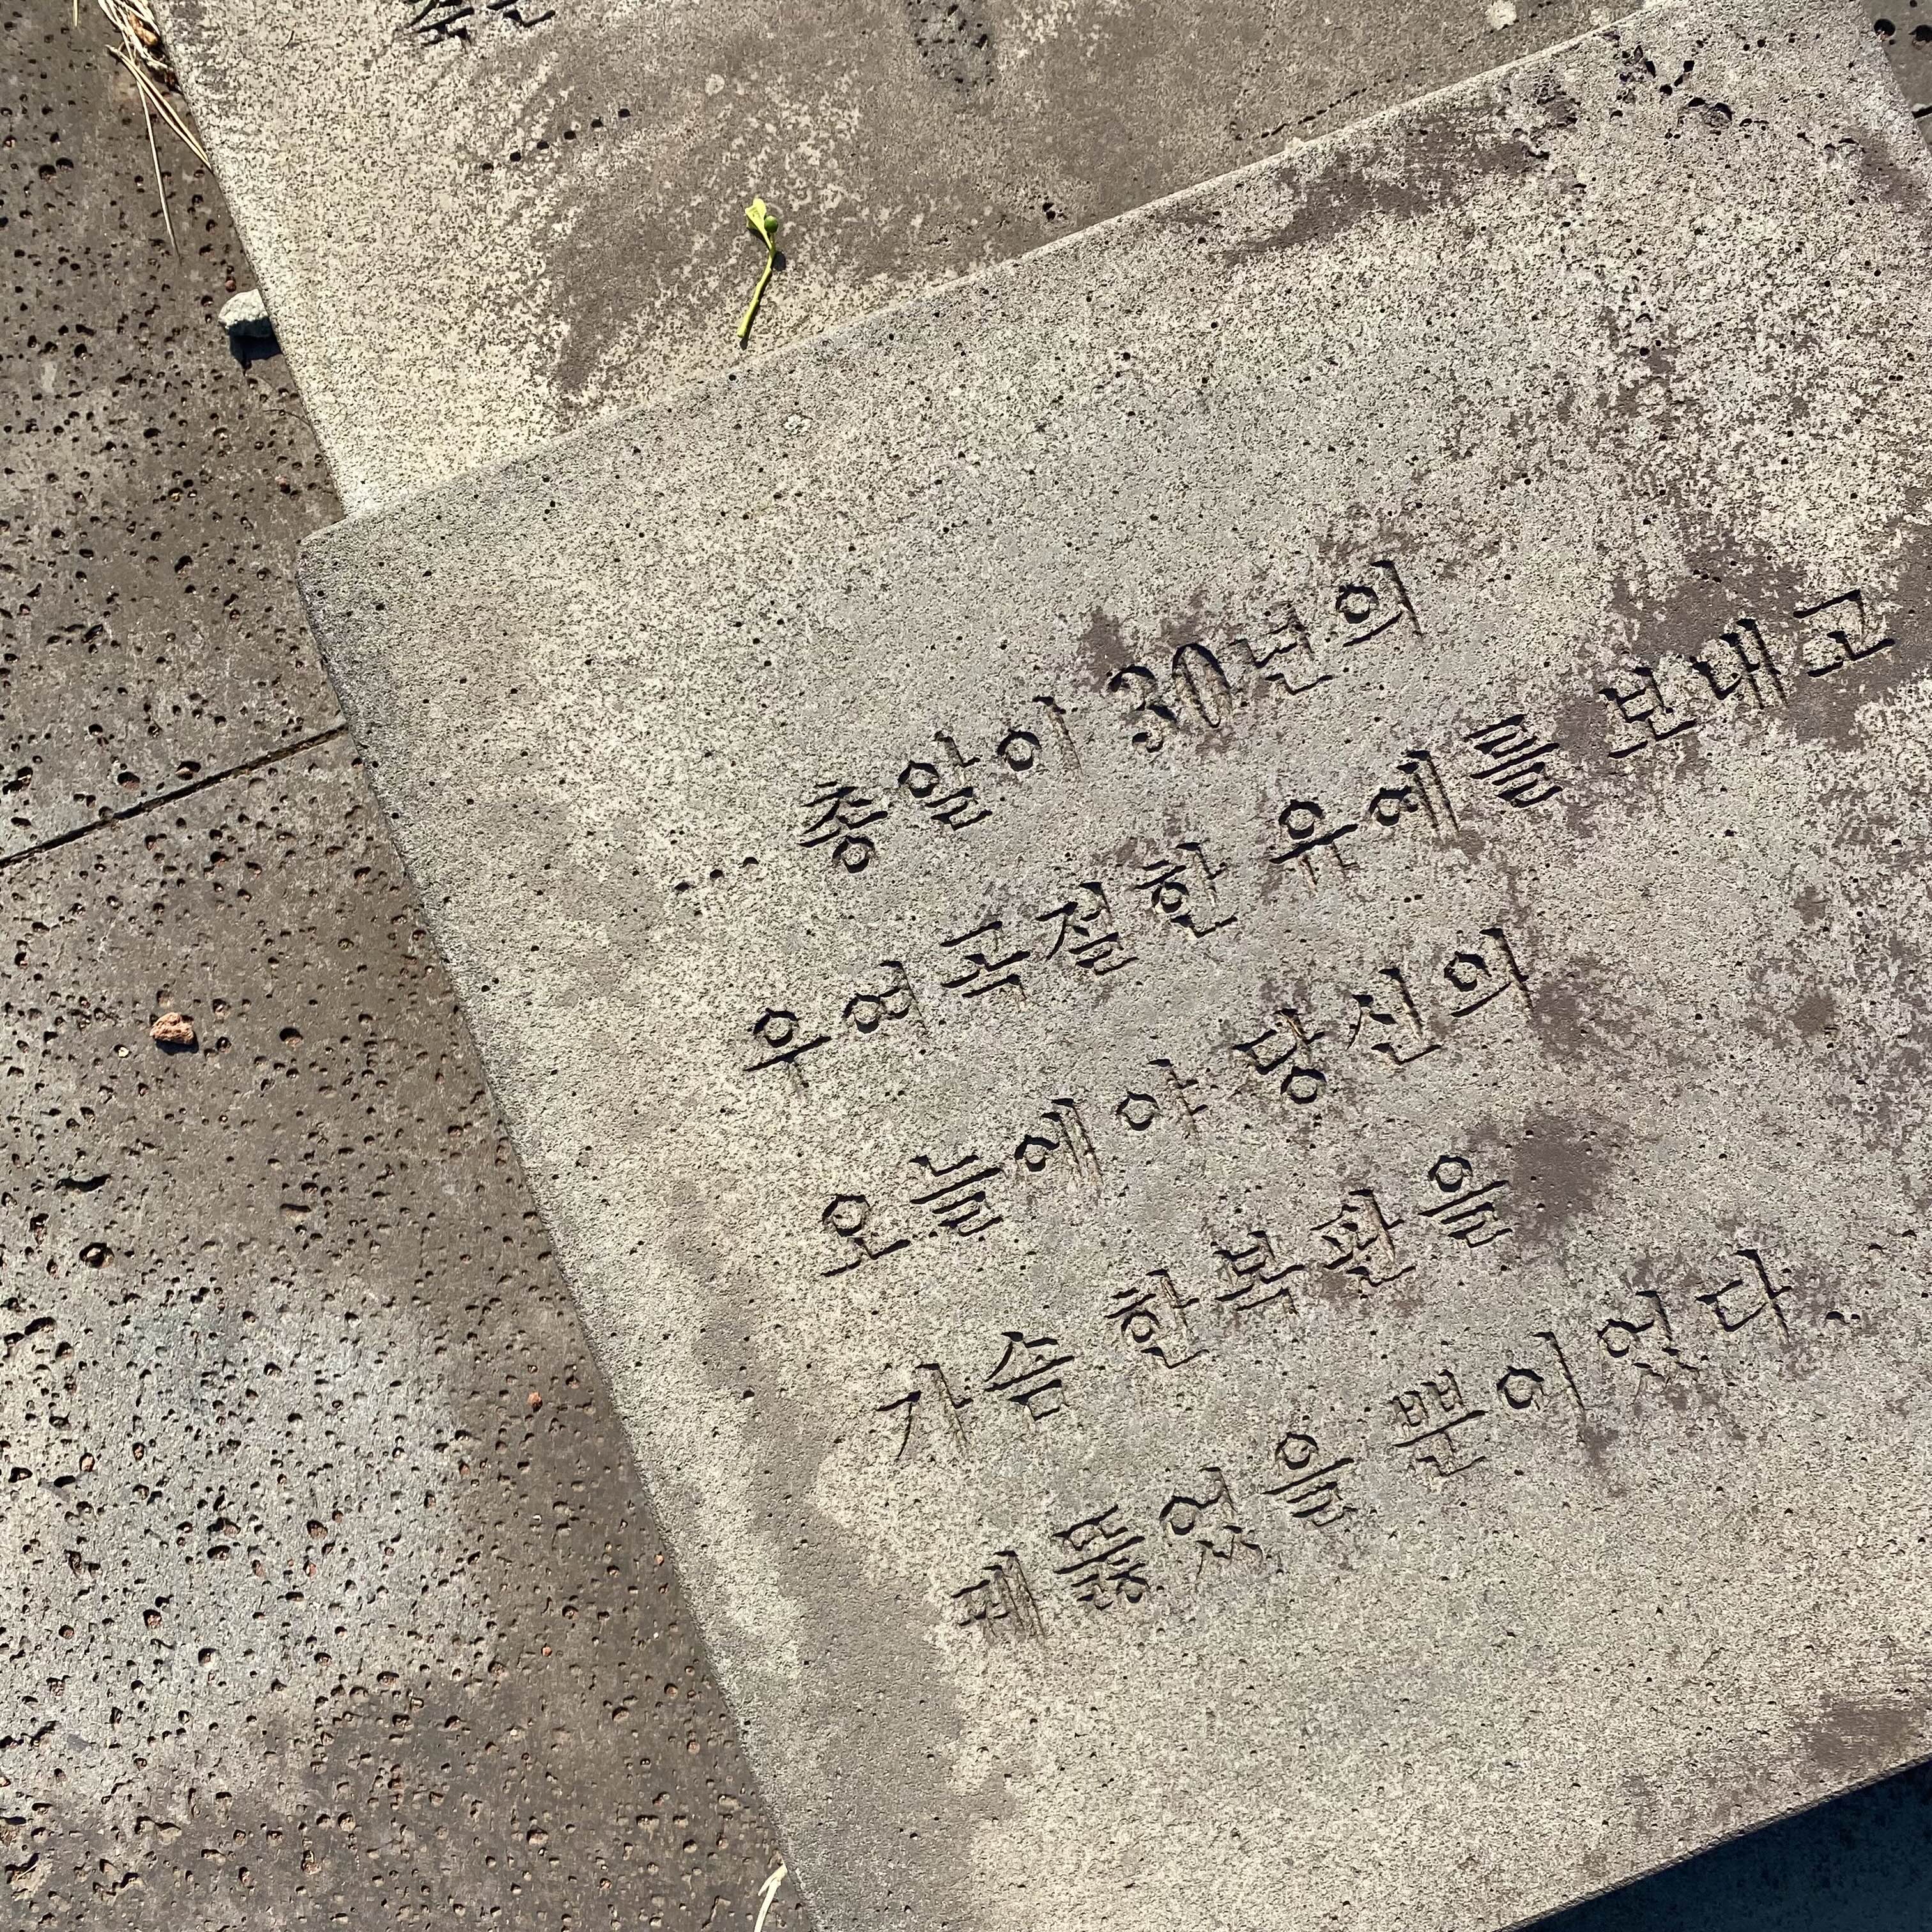 …총알이 30년의
우여곡절한 유예를 보내고
오늘에야 당신의
가슴 한복판을
꿰뚫었을 뿐이었다.